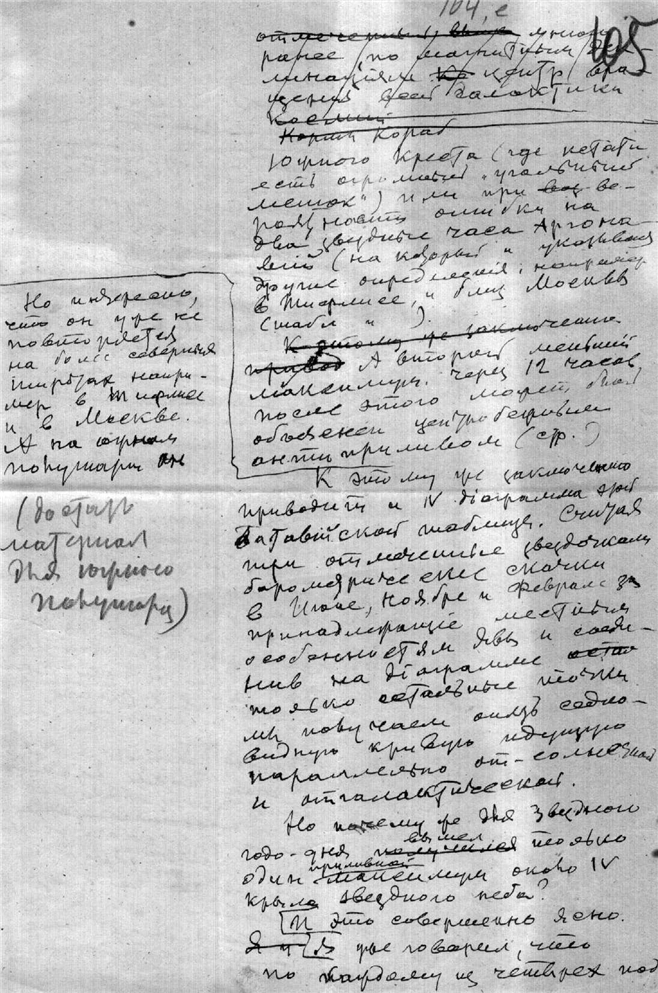 104, е
105
отмеченный выше много
ранее, по магнитным
центр вра-
щения всей Галактики
Космий
Корми Кораб
Южного Креста (где кстати
есть огромный "угольный
мешок") или при ве-
роятности ошибки на
два звездные часа Аргона-
(на который и указывают
другие определения, например
в Тифлисе, и близ Москвы
).
К этому же заключению
привод А второй меньший
максимум через 12 часов
после этого может быть
объяснен центробежным
антиприливом (стр. )
Но интересно,
что он уже не
повторяется
на более северных
широтах напри-
мер в Тифлисе
и в Москве.
А на южном
полушарии он
(достать
материал
для южного
полушария)
К этому же заключению
приводит и IV діаграмма этой
Батавійской таблицы. Считая
три отмеченные звездочками
барометрические скачки
в Июне, Ноябре и Феврале за
принадлежащіе местным
особенностям Явы и соеди-
нив на діаграмме остал
только остальные точки
мы получаем опять седло-
видную кривую идущую
параллельно от-солнечной
и отгалактической.
Но почему же для звездного
годо-дня получился вышел только
один приливной максимум около IV
крыла звездного неба?
И это совершенно ясно.
Я у Я уже говорил, что
по каждому из четырех под